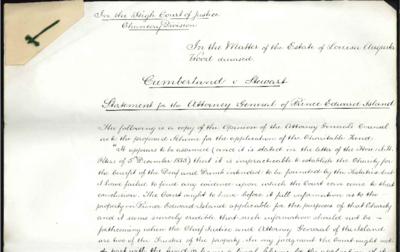 In the High Court of Justice
Chancery Division
In the Matter of the Estate of Louisa Augusta
Wood deceased.
Cumberland v Stewart
Statement for the Attorney General of Prince Edward Island
The following is a copy of the Opinion of the Attorney General's Counsel
as to the proposed Scheme for the application of the Charitable Fund.
"It appears to be assumed (and it is stated in the letter of the Hon.
of 5th December 1883) that it is impracticable to establish the Charity for
the benefit of the Deaf and Dumb intended to be founded by the Testatrix but
I have failed to find any evidence upon which the Court can come to that
conclusion. The Court ought to have before it full information as to the
property in Prince Edward Island applicable for the purposes of that Charity
and it seems scarcely credible that such information should not be
forthcoming when the Chief Justice and Attorney General of the Island
are two of the Trustees of the property. In my judgment the Court ought not